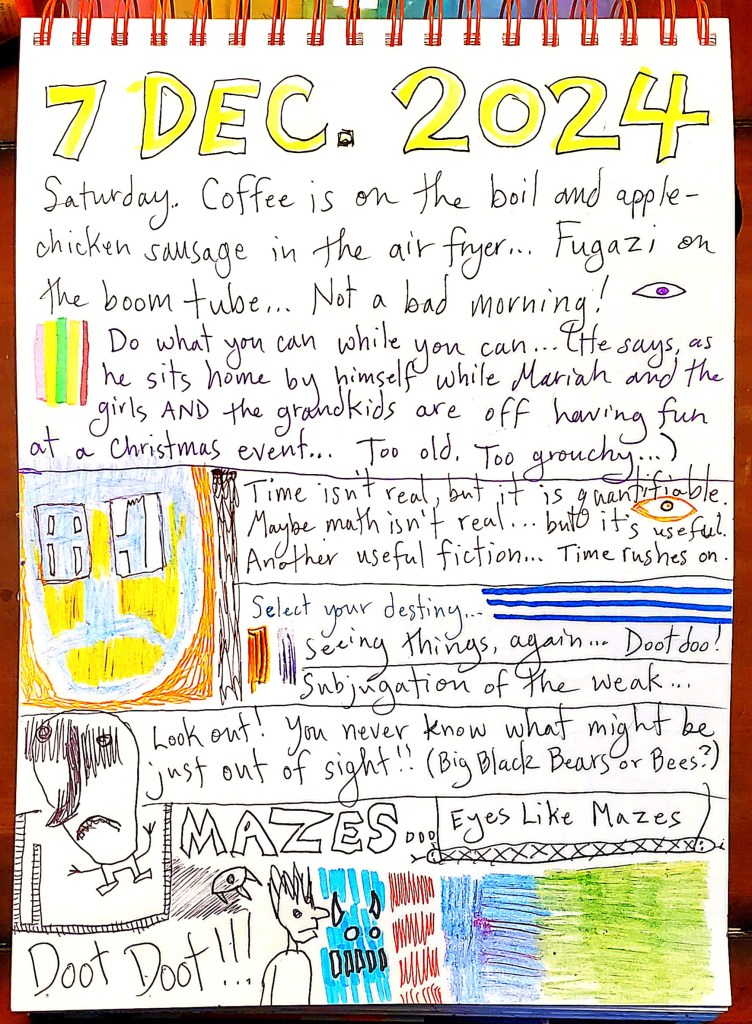 7 DEC. 2024
Saturday. Coffee is on the boil and apple-
chicken sausage in the air fryer... Fugazi on
the boom tube... Not a bad morning!
Do what you can while you can... (He says, as
he sits home by himself while Mariah and the
girls AND the grandkids are off having fun
at a Christmas event... Too old. Too grouchy...)
Time isn't real, but it is quantifiable.
Maybe math isn't real... but it's useful.
Another useful fiction... Time rushes on.
Select your destiny...
Seeing things, again... Doot doo!
Subjugation of the weak...
Look out! You never know what might be
just out of sight!! (Big Black Bears or Bees?)
MAZES...
Eyes Like Mazes
Doot Doot!!!